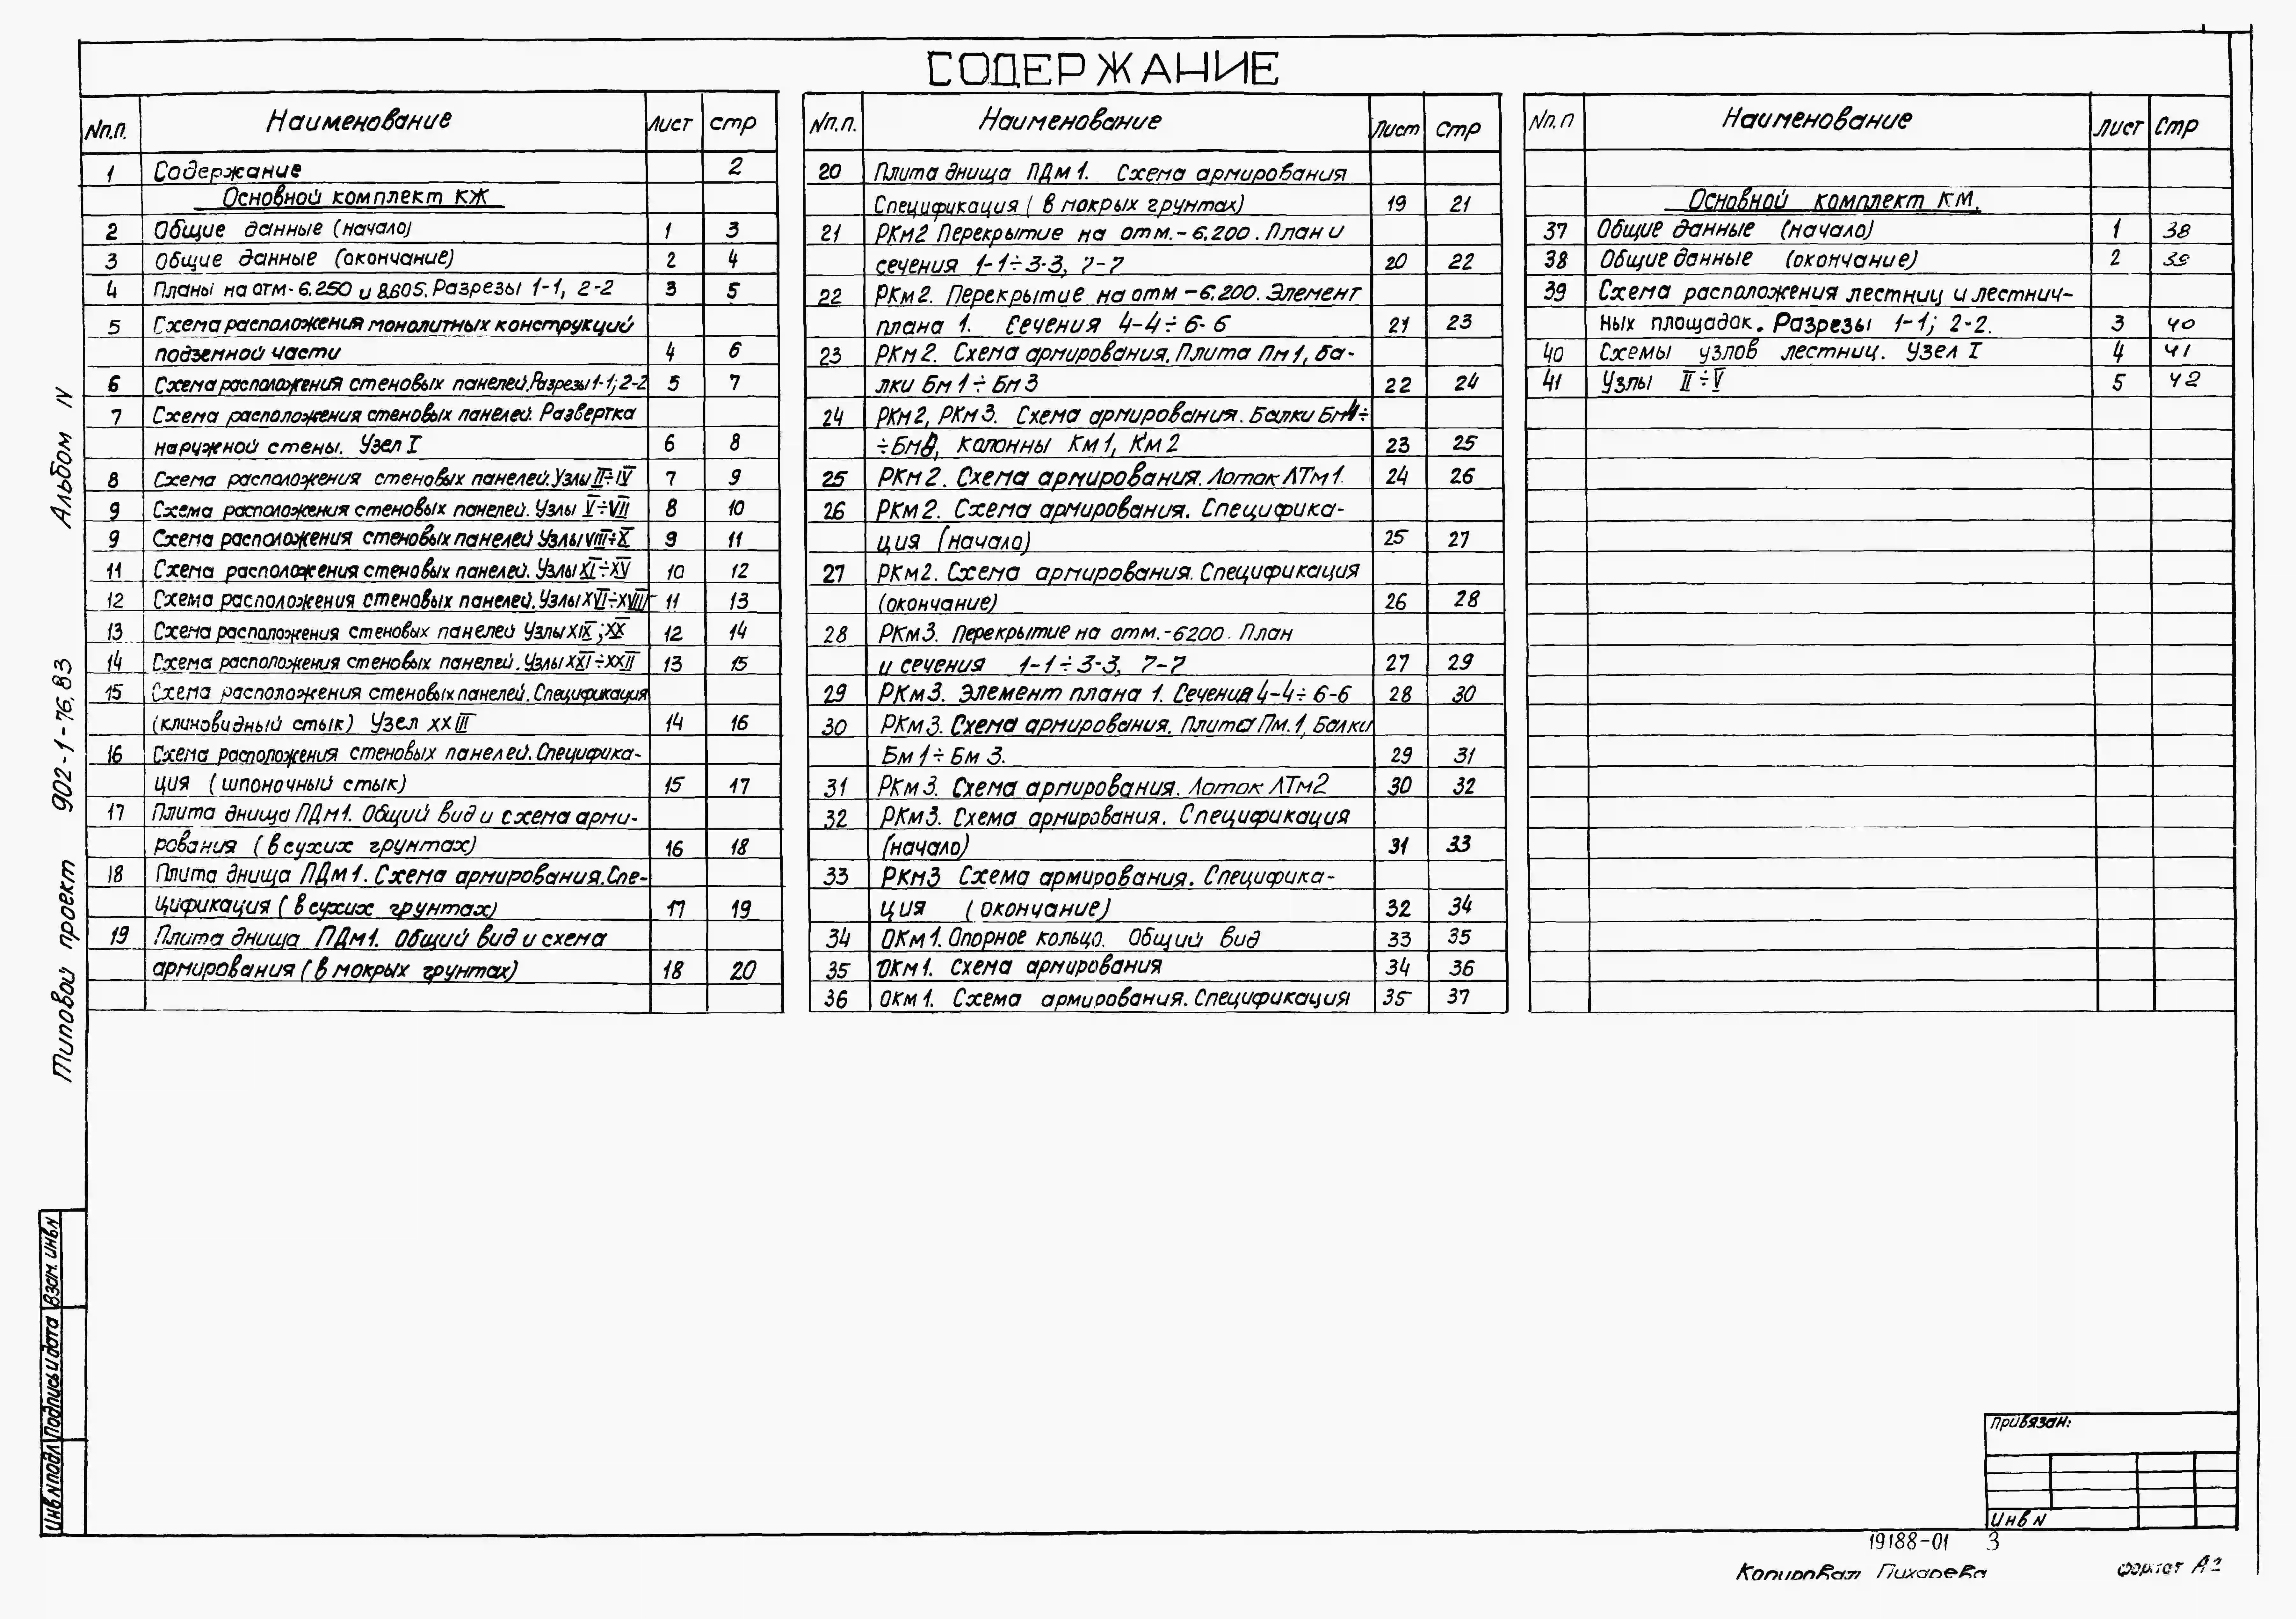 СОДЕРЖАНИЕ
Nп.п. Наименование Лист стр
1 Содержание 2
Основной комплект КЖ
2 Общие данные (начало) 1 3
3 Общие данные (окончание) 2 4
4 Планы на отм-6.250 и 8.605. Разрезы 1-1, 2-2 3 5
5 Схема расположения монолитных конструкций
подземной части 4 6
6 Схема расположения стеновых панелей. Разрезы 1-1; 2-2 5 7
7 Схема расположения стеновых панелей. Развертка
наружной стены. Узел I 6 8
8 Схема расположения стеновых панелей. Узлы II÷IV 7 9
9 Схема расположения стеновых панелей. Узлы V÷VII 8 10
9 Схема расположения стеновых панелей Узлы VIII÷X 9 11
11 Схема расположения стеновых панелей. Узлы XI÷XV 10 12
12 Схема расположения стеновых панелей. Узлы XVI÷XVIII 11 13
13 Схема расположения стеновых панелей Узлы XIX; XX 12 14
14 Схема расположения стеновых панелей. Узлы XXI÷XXII 13 15
15 Схема расположения стеновых панелей. Спецификация
(клиновидный стык) Узел XXIII 14 16
16 Схема расположения стеновых панелей. Специфика-
ция (шпоночный стык) 15 17
17 Плита днища ПДм1. Общий вид и схема арми-
рования (в сухих грунтах) 16 18
18 Плита днища ПДм1. Схема армирования. Спе-
цификация (в сухих грунтах) 17 19
19 Плита днища ПДм1. Общий вид и схема
армирования (в мокрых грунтах) 18 20
Nп.п. Наименование Лист стр
20 Плита днища ПДм1. Схема армирования
Спецификация (в мокрых грунтах) 19 21
21 РКм2 Перекрытие на отм.-6.200. План и
сечения 1-1÷3-3, 7-7 20 22
22 РКм2. Перекрытие на отм -6.200. Элемент
плана 1. Сечения 4-4÷6-6 21 23
23 РКм2. Схема армирования. Плита Пм1, ба-
лки Бм1÷Бм3 22 24
24 РКм2, РКм3. Схема армирования. Балки Бм4÷
÷Бм8, колонны Км1, Км2 23 25
25 РКм2. Схема армирования. Лоток ЛТм1. 24 26
26 РКм2. Схема армирования. Специфика-
ция (начало) 25 27
27 РКм2. Схема армирования. Спецификация
(окончание) 26 28
28 РКм3. Перекрытие на отм.-6200. План
и сечения 1-1÷3-3, 7-7 27 29
29 РКм3. Элемент плана 1. Сечения 4-4÷6-6 28 30
30 РКм3. Схема армирования. Плита Пм.1, Балки
Бм1÷Бм3. 29 31
31 РКм3. Схема армирования. Лоток ЛТм2 30 32
32 РКм3. Схема армирования. Спецификация
(начало) 31 33
33 РКм3 Схема армирования. Специфика-
ция (окончание) 32 34
34 ОКм1. Опорное кольцо. Общий вид 33 35
35 ОКм1. Схема армирования 34 36
36 ОКм1. Схема армирования. Спецификация 35 37
Nп.п Наименование Лист Стр
Основной комплект КМ.
37 Общие данные (начало) 1 38
38 Общие данные (окончание) 2 39
39 Схема расположения лестниц и лестнич-
ных площадок. Разрезы 1-1; 2-2. 3 40
40 Схемы узлов лестниц. Узел I 4 41
41 Узлы II÷V 5 42
Типовой проект 902-1-76.83 Альбом IV
Инв N подл Подпись и дата Взам. инв N
Привязан:
Инв N
19188-01 3
Копировал Пихарева формат А2